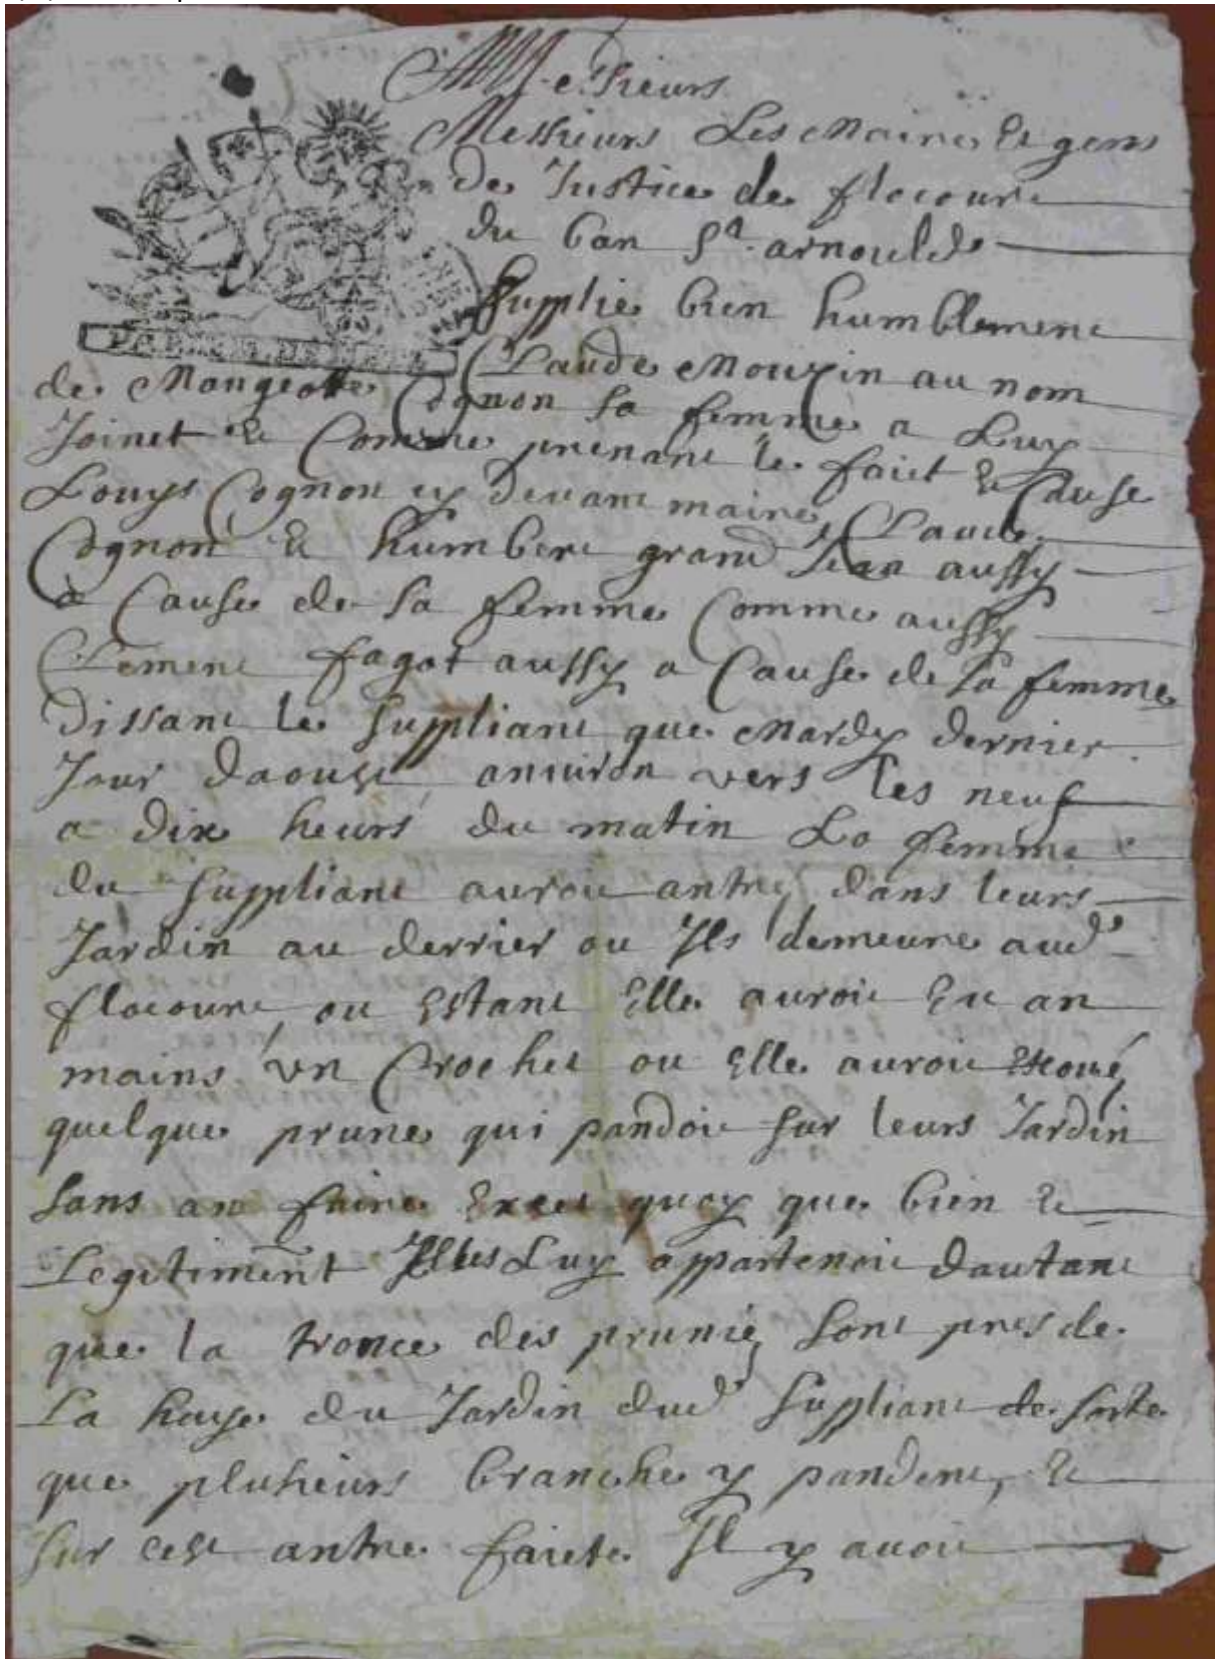 Messieurs
Messieurs Les Maire Et gens
de Justice de flocourt
du ban St. arnould
Supplie bien humblement
Claude Mouzin au nom
de Mangeotte Cognon sa femme a Luy
Joinct Et Comme prenant le faict Et Cause
Louys Cognon cy devant maire, Claude
Cognon Et humbert grand Jean aussy
a Cause de sa femme Comme aussy
Clement fagot aussy a Cause de sa femme
dissant le suppliant que Mardy dernier
Jour daoust anviron vers les neuf
a dix heurs du matin La femme
du suppliant auroit antre dans leurs
Jardin au derrier ou Ils demeure aud
flocourt, ou Estant Elle auroit Eu an
mains un Crochet ou Elle auroit
quelque prune qui pandoit sur leurs Jardin
sans an faire Exces quoy que bien Et
Legitiment Luy appartenoit dautant
que la tronce des prunie sont pres de
La haye du Jardin dud suppliant de sorte
que plusieurs branche y pandent, Et
sur cest antre faicte Il y avoit